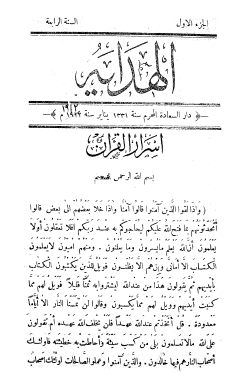 الجزء الاول
السنة الرابعة
الهداية
دار السعادة المحرم سنة ١٣٣١ يناير سنة م
اسرار القرآن
بسم الله الرحمن الرحيم
( واذا لقوا الذين آمنوا قالوا آمنا واذا خلا بعضهم الى بعض قالوا
أتحدثونهم بما فتح الله عليكم ليحاجوكم به عند ربكم افلا تعقلون أولا
يعلمون أن الله يعلم مايسرون وما يعلنون . ومنهم اميون لايعلمون
الكتاب الا أماني وان هم الا يظنون فويل للذين يكتبون الكتاب
بأيديهم ثم يقولون هذا من عند الله ليشتروا به ثمنا قليلا فويل لهم مما
كتبت أيديهم وويل لهم مما يكسبون وقالوا لن تمسنا النار الا أياما
معدودة . قل أتخذتم عند الله عهدا فلن يخلف الله عهده أم تقولون
على الله مالا تعلمون بلى من كسب سيئة وأحاطت به خطيئته فاولئك
أصحاب النار هم فيها خالدون . والذين آمنوا وعملوا الصالحات اولئك اصحاب